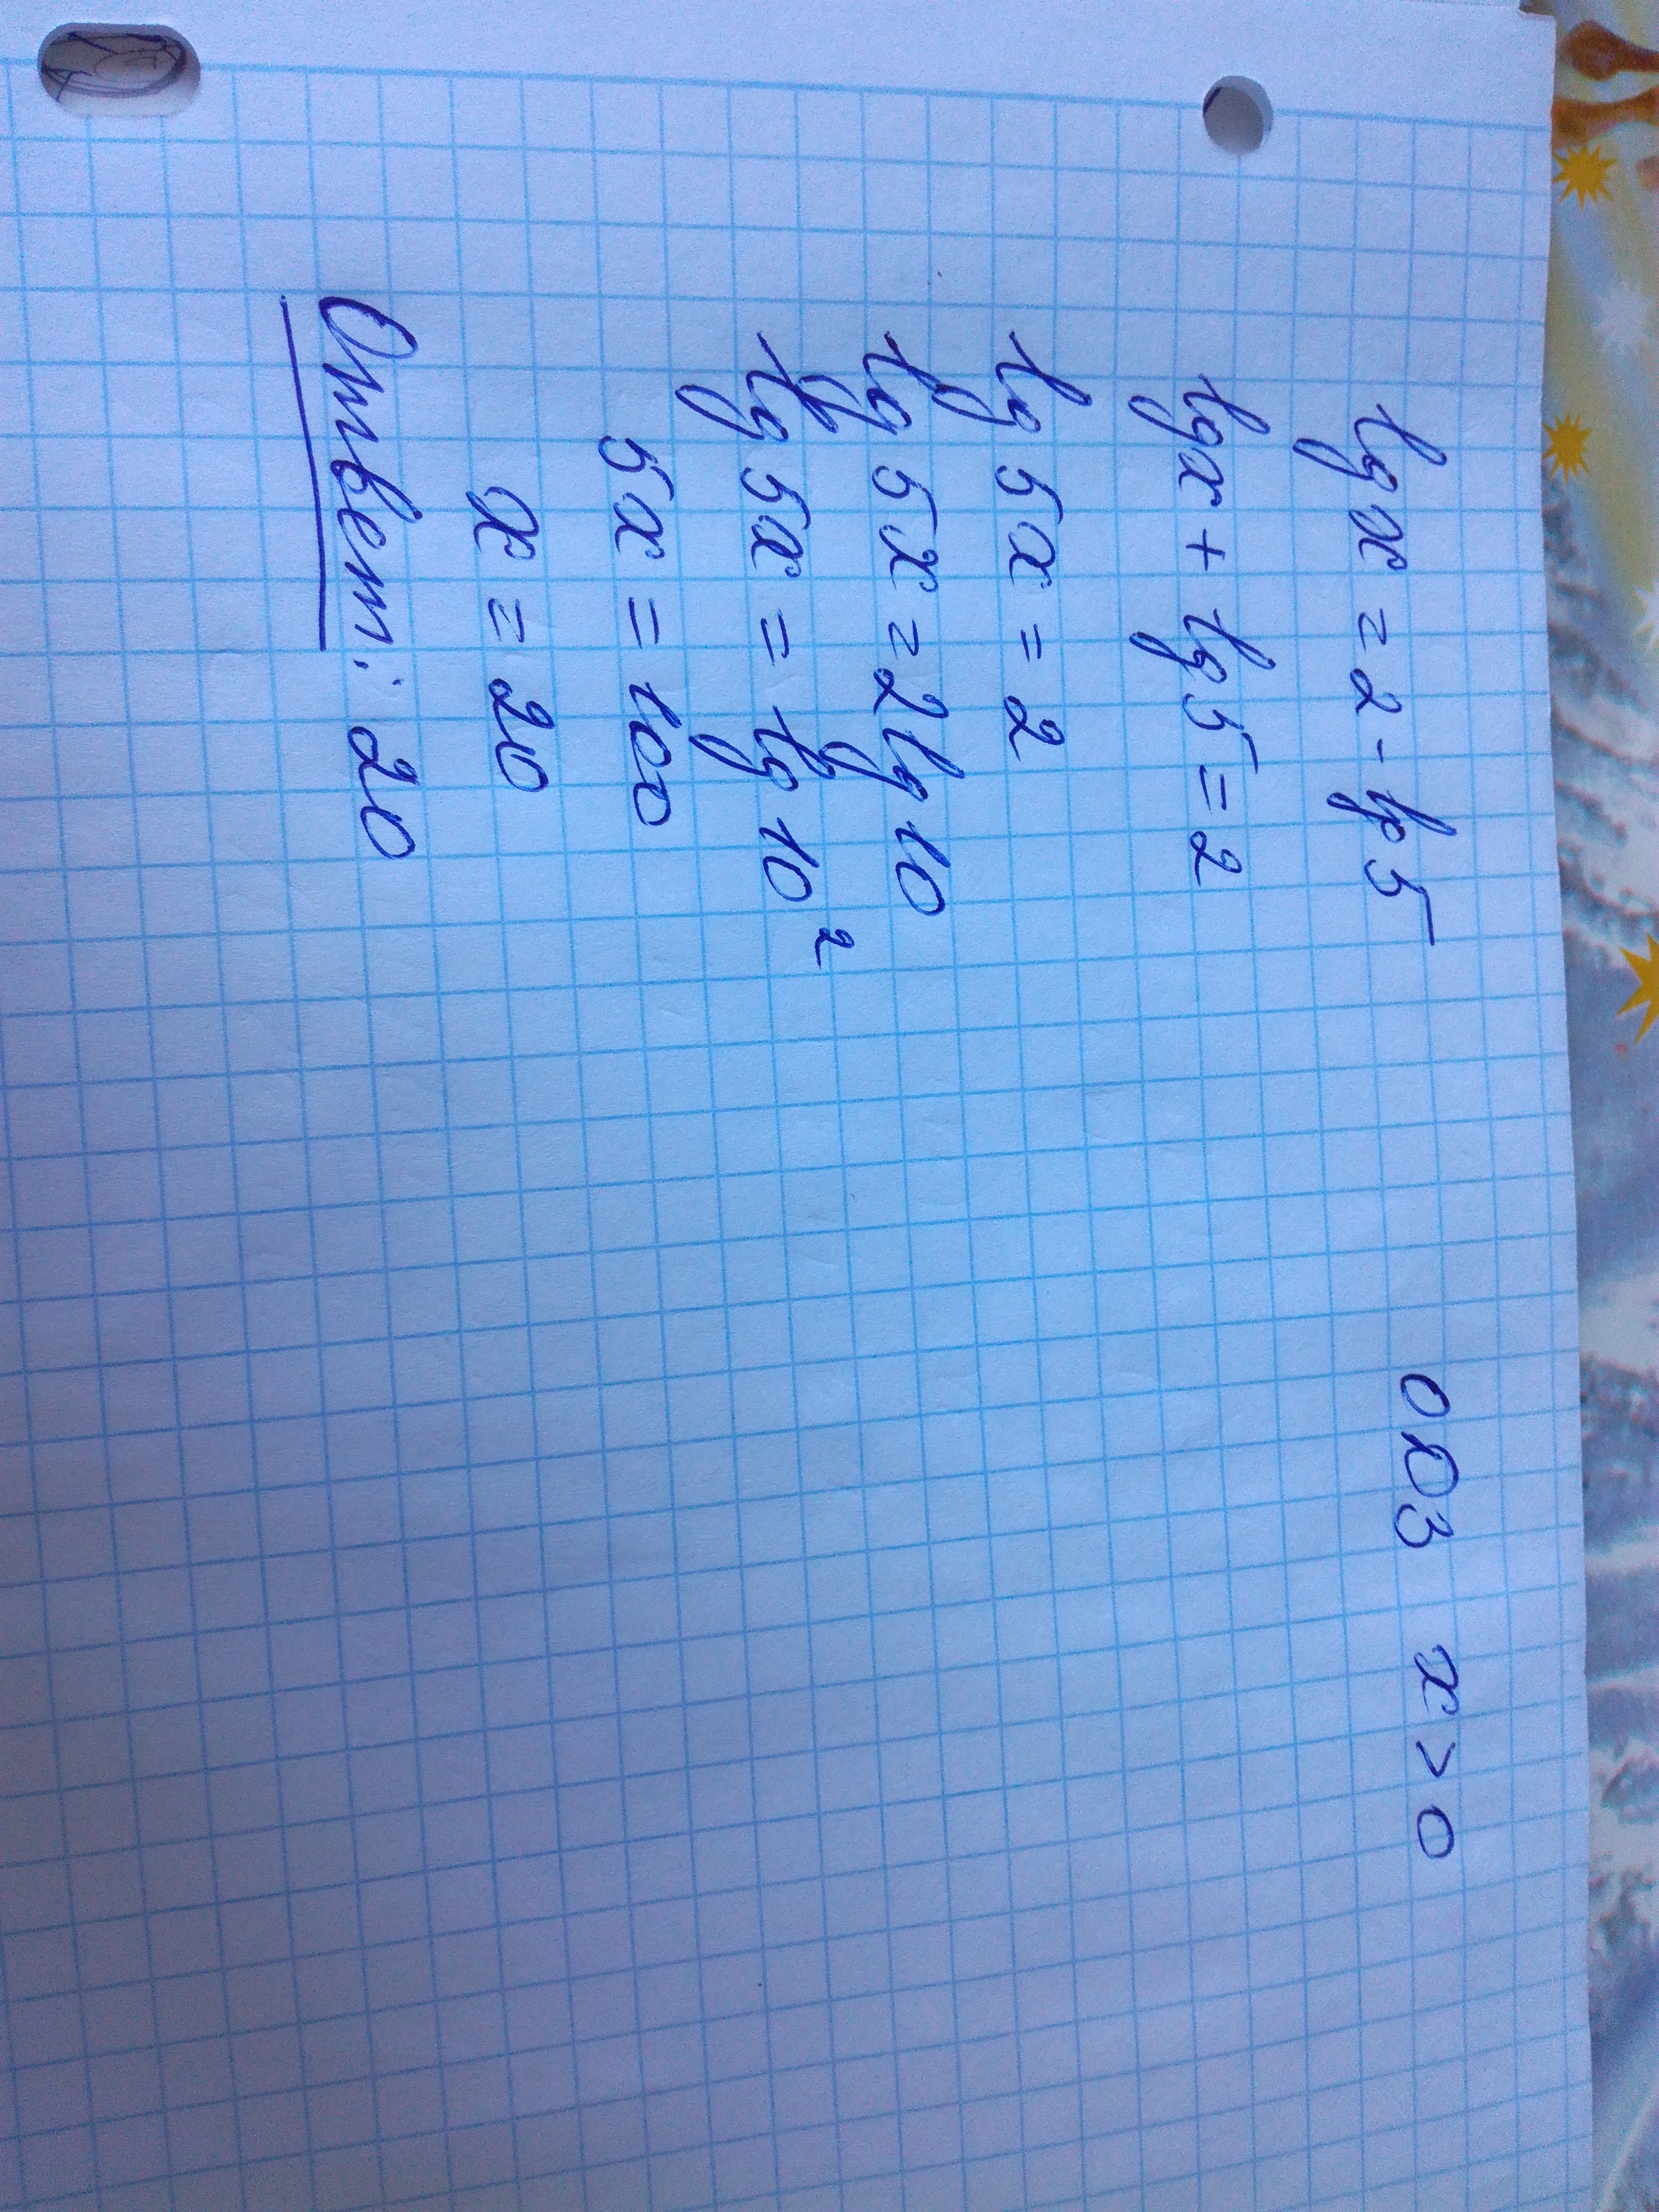 lg x = 2 - lg 5 ОДЗ x > 0
lg x + lg 5 = 2
lg 5x = 2
lg 5x = 2 lg 10
lg 5x = lg 10²
5x = 100
x = 20
Ответ: 20